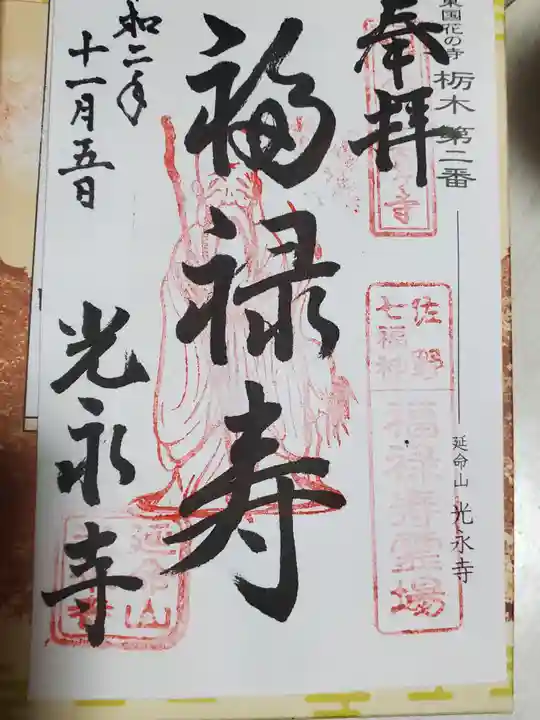 東国花の寺 栃木 第二番
延命山 光永寺
奉拝
佐野
七福神
福禄寿霊場
福禄寿
和二年
十一月五日
光永寺
延命山